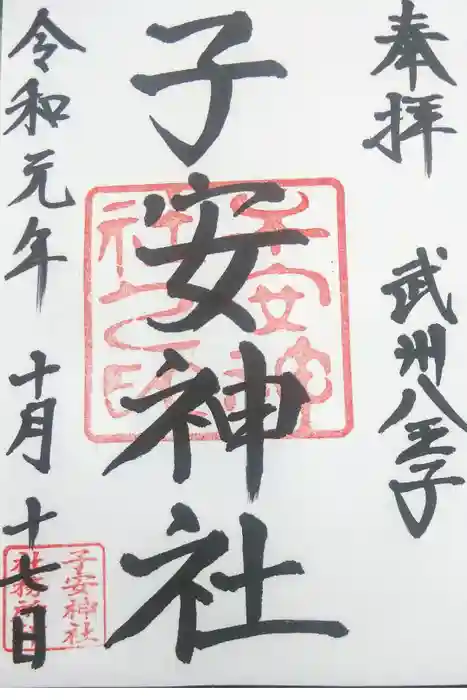 奉拝
武州八王子
子安神社
令和元年十月十七日
子安神
社之印
子安神社
社務所